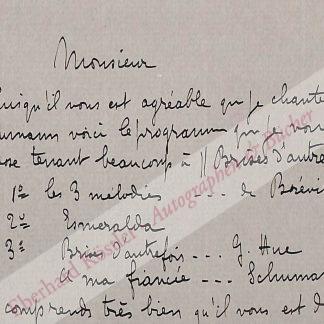 Monsieur
Puisqu'il vous est agréable que je chante
umann voici le programme que je vous
ose tenant beaucoup à "Brises d'autre
1º les 3 mélodies --- de Brévi
2º Esmeralda
3º Brises d'autrefois --- G. Hue
A ma fiancée --- Schuma
comprends très bien qu'il vous est d
Eberhard Köstler Autographen & Bücher